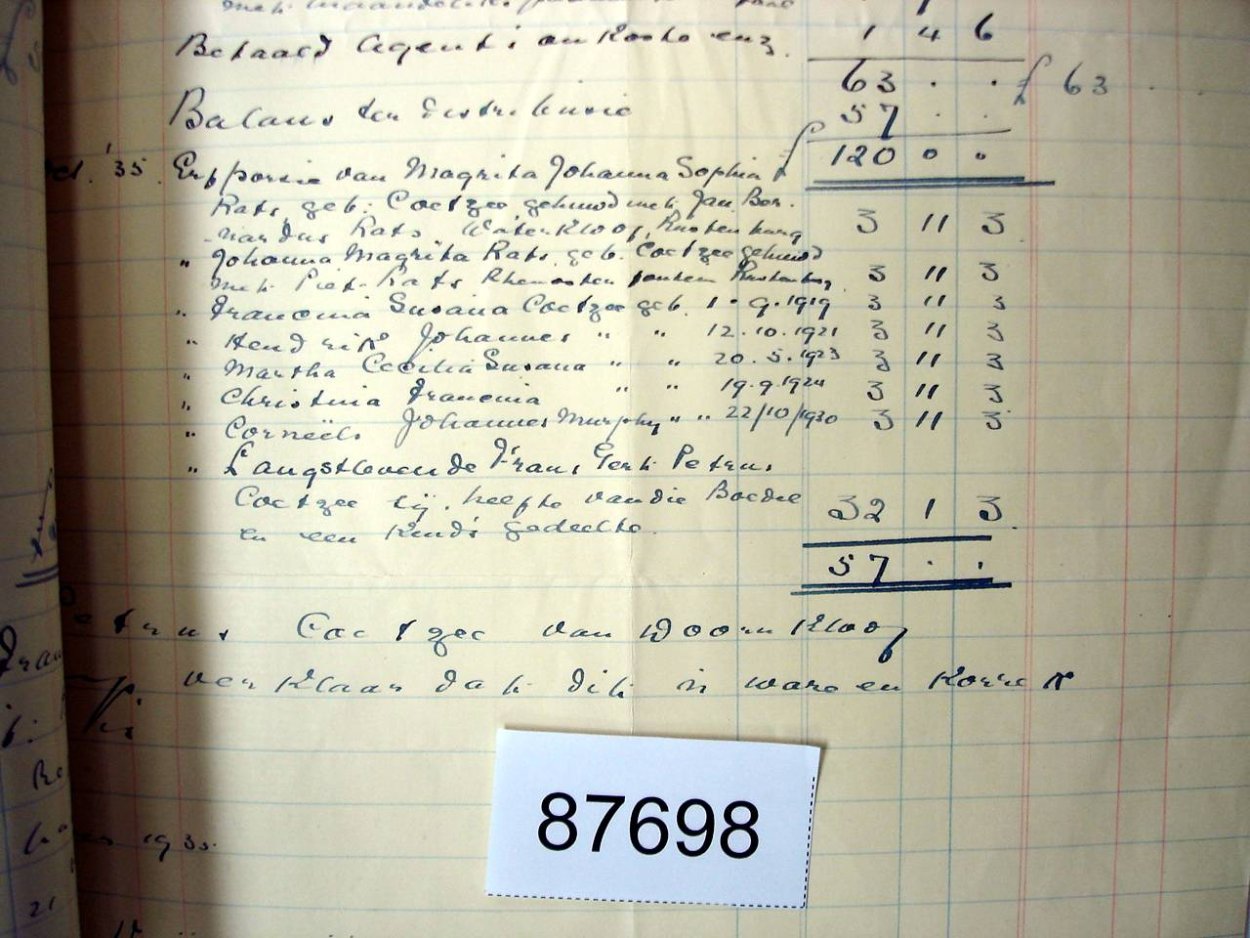 Betaald Agents an Koste enz. 1 4 6
63 . . £ 63
Balans ter Distribusie 57 . .
£ 120 0 0
'35. Erfporsie van Magrita Johanna Sophia
Rats, geb: Coetzee gehuwd met Jan Ber-
nardus Rats Waterkloof, Rustenburg 3 11 3
" Johanna Magrita Rats, geb. Coetzee gehuwd
met Piet Rats Rhenosterfontein Rustenburg. 3 11 3
" Francina Susana Coetzee geb. 1.9.1919 3 11 3
" Hendrik Johannes " " 12.10.1921 3 11 3
" Martha Cecilia Susana " " 20.5.1923 3 11 3
" Christina Francina " " 19.9.1924 3 11 3
" Corneëls Johannes Murphy " " 22/10/1930 3 11 3
" Langstlevende Frans Gert Petrus
Coetzee sy helfte van die Boedel
en een kinds gedeelte. 32 1 3.
57 . .
Petrus Coetzee van Doornkloof
verklaar dat dit is ware en korrek
1935
21
87698